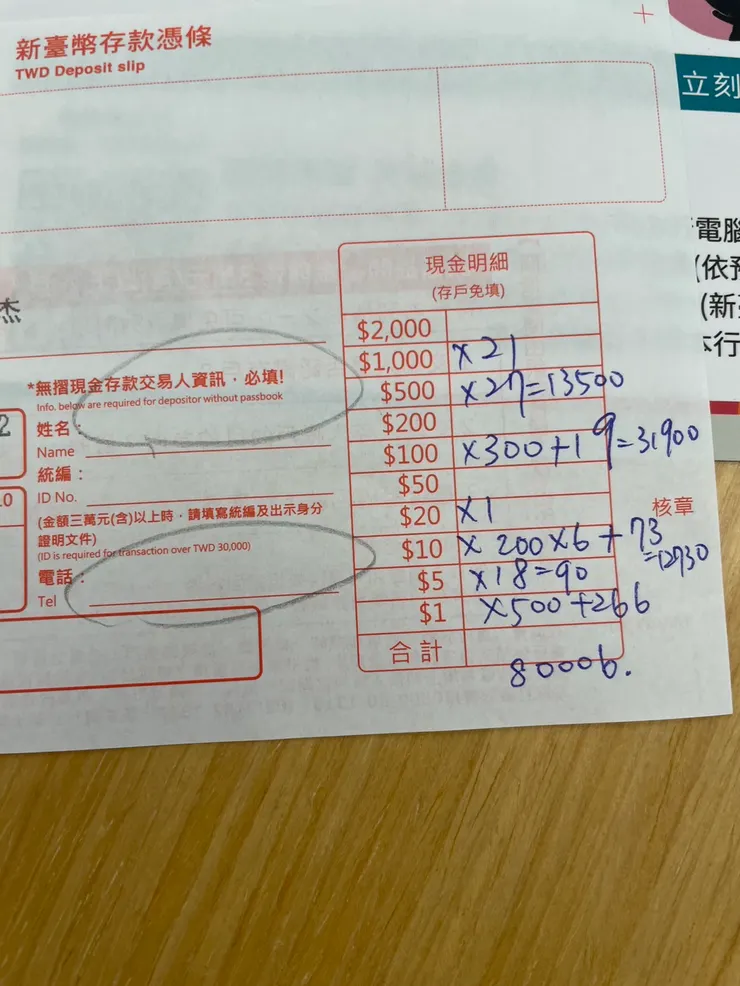 新臺幣存款憑條
TWD Deposit slip
立刻
電腦
(依預
(新臺
本行
杰
現金明細
(存戶免填)
$2,000
$1,000 ×21
$500 ×27=13500
$200
$100 ×300+19=31900
$50
$20 ×1
$10 ×200×6+73
=12730
$5 ×18=90
$1 ×500+266
合計 80006.
*無摺現金存款交易人資訊，必填!
Info. below are required for depositor without passbook
姓名：
Name
統編：
ID No.
(金額三萬元(含)以上時，請填寫統編及出示身分
證明文件)
(ID is required for transaction over TWD 30,000)
電話：
Tel
核章
2
10